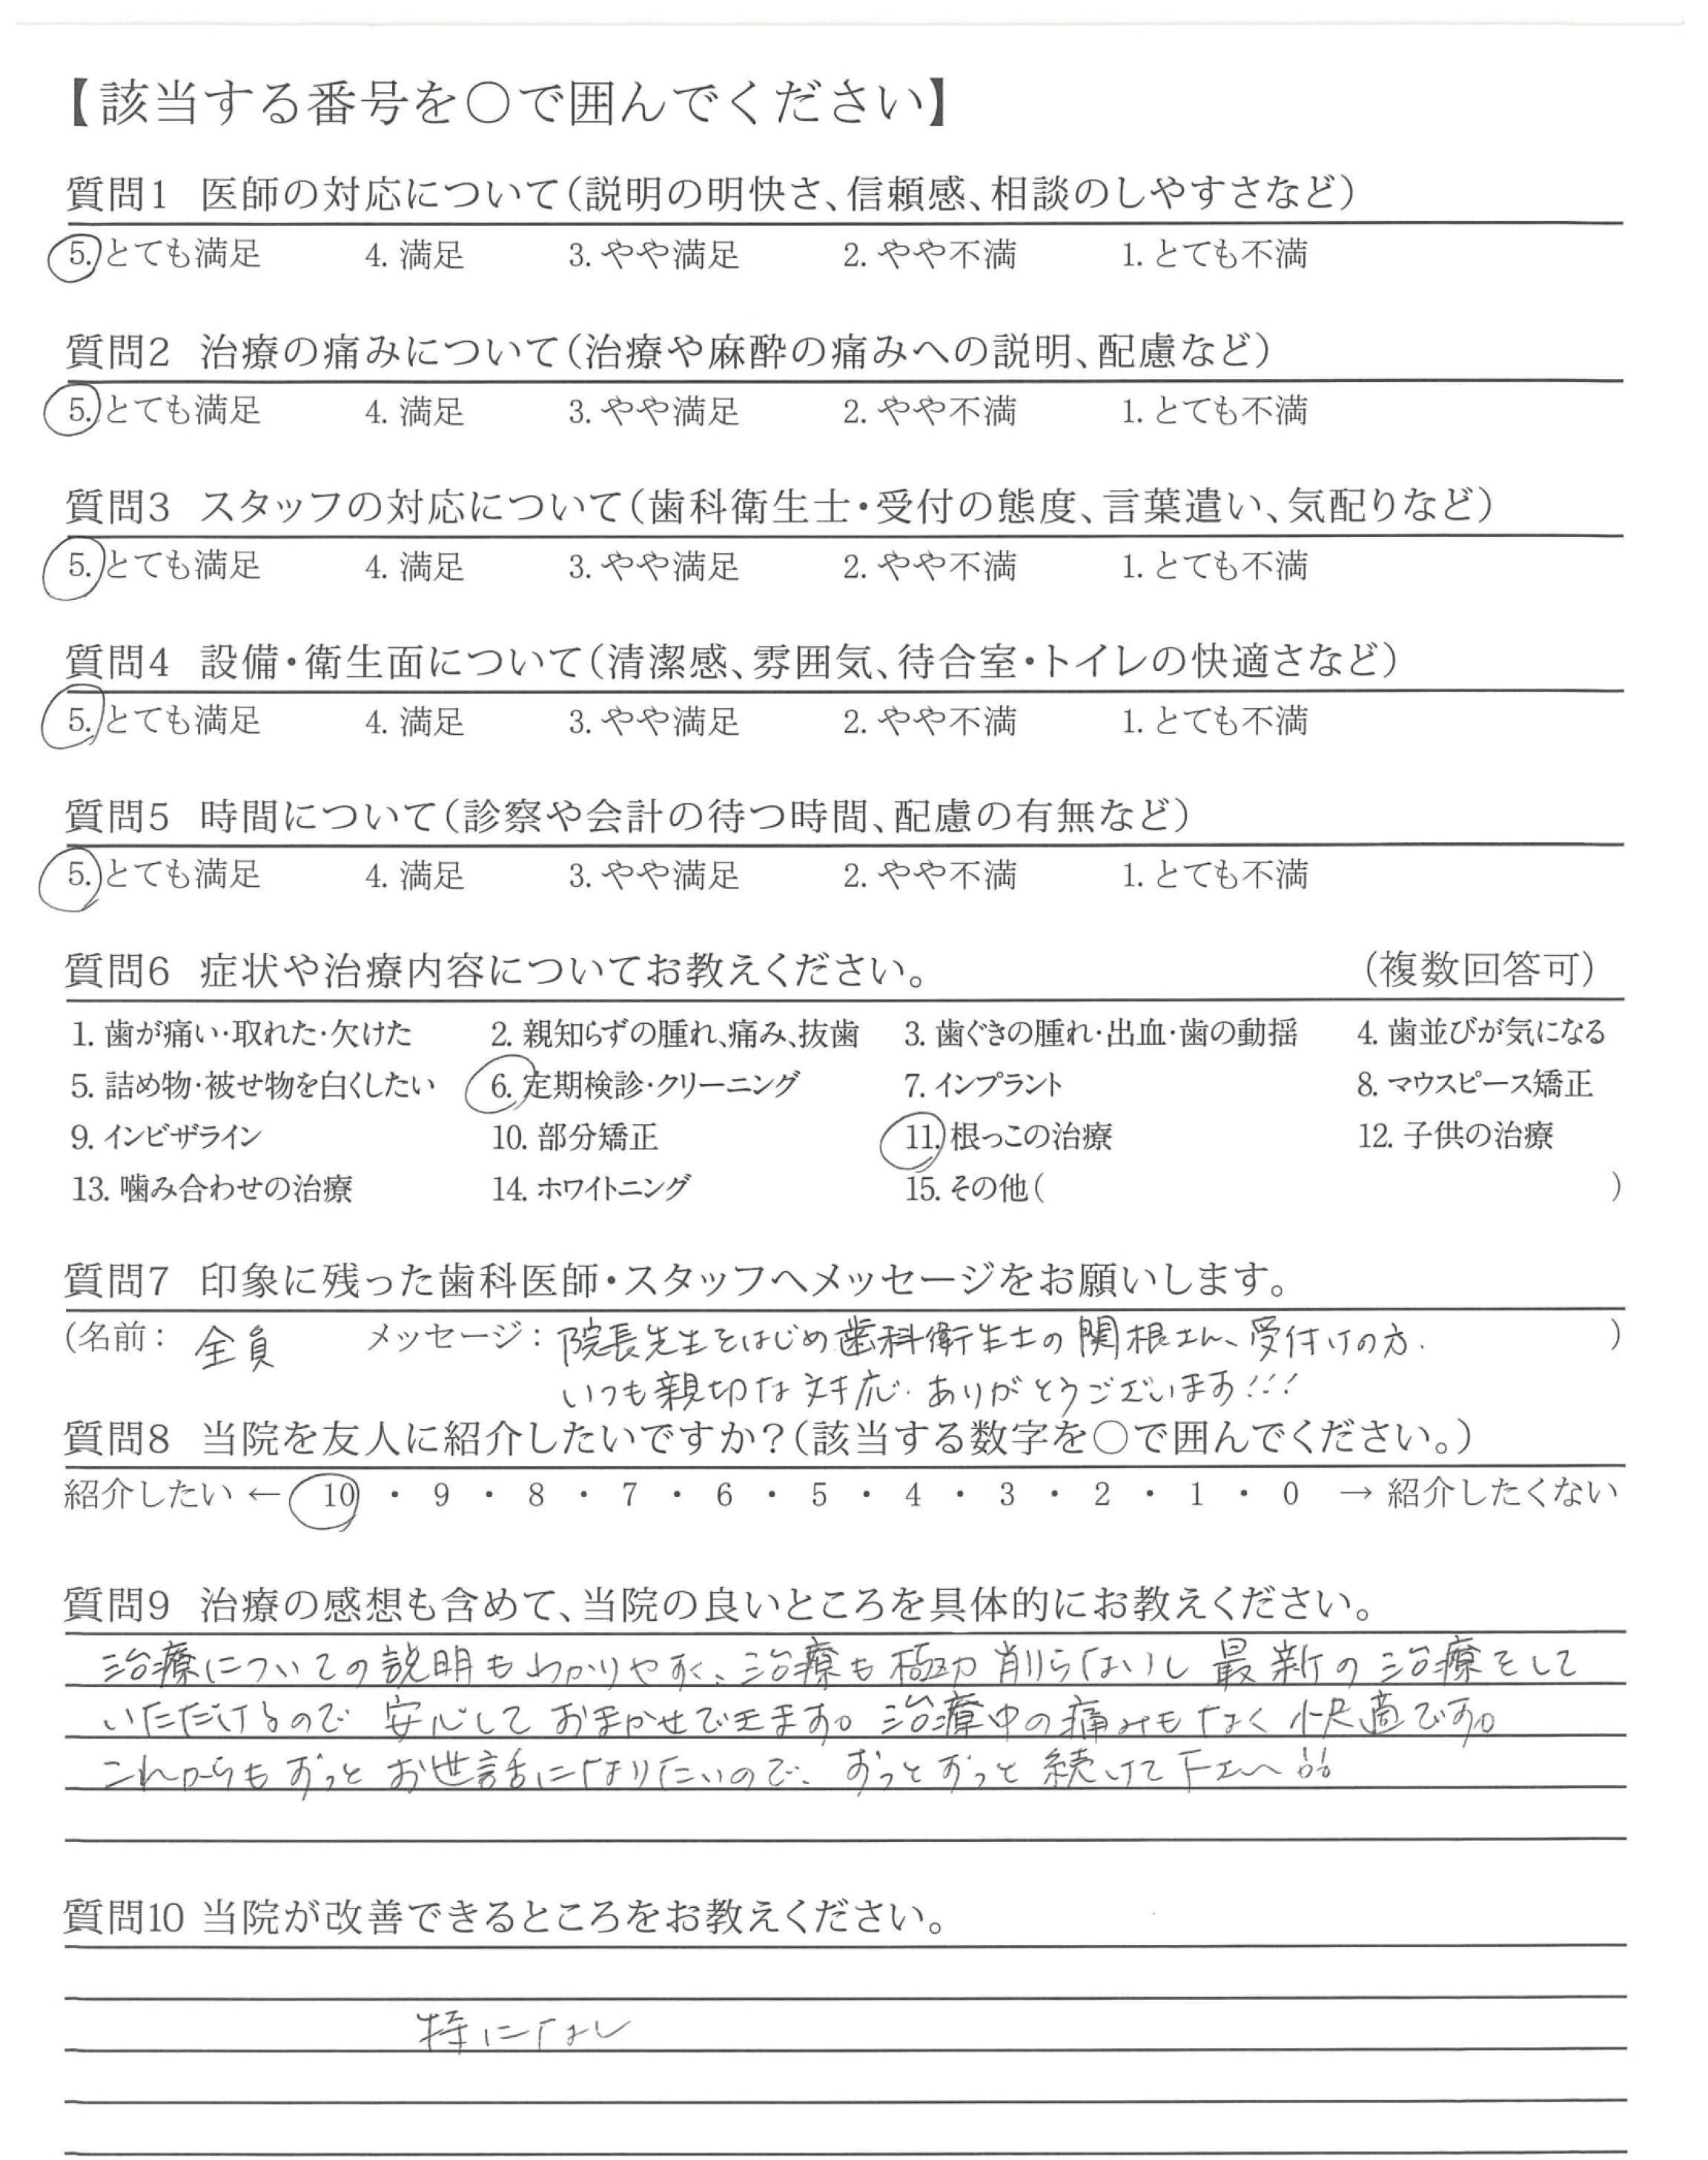 【該当する番号を○で囲んでください】
質問1 医師の対応について(説明の明快さ、信頼感、相談のしやすさなど)
5. とても満足 4. 満足 3. やや満足 2. やや不満 1. とても不満
質問2 治療の痛みについて(治療や麻酔の痛みへの説明、配慮など)
5. とても満足 4. 満足 3. やや満足 2. やや不満 1. とても不満
質問3 スタッフの対応について(歯科衛生士・受付の態度、言葉遣い、気配りなど)
5. とても満足 4. 満足 3. やや満足 2. やや不満 1. とても不満
質問4 設備・衛生面について(清潔感、雰囲気、待合室・トイレの快適さなど)
5. とても満足 4. 満足 3. やや満足 2. やや不満 1. とても不満
質問5 時間について(診察や会計の待つ時間、配慮の有無など)
5. とても満足 4. 満足 3. やや満足 2. やや不満 1. とても不満
質問6 症状や治療内容についてお教えください。 (複数回答可)
1. 歯が痛い・取れた・欠けた 2. 親知らずの腫れ、痛み、抜歯 3. 歯ぐきの腫れ・出血・歯の動揺 4. 歯並びが気になる
5. 詰め物・被せ物を白くしたい 6. 定期検診・クリーニング 7. インプラント 8. マウスピース矯正
9. インビザライン 10. 部分矯正 11. 根っこの治療 12. 子供の治療
13. 噛み合わせの治療 14. ホワイトニング 15. その他( )
質問7 印象に残った歯科医師・スタッフへメッセージをお願いします。
(名前: 全員 メッセージ: 院長先生をはじめ歯科衛生士の関根さん、受付けの方. )
いつも親切な対応、ありがとうございます!!!
質問8 当院を友人に紹介したいですか?(該当する数字を○で囲んでください。)
紹介したい ← 10 ・ 9 ・ 8 ・ 7 ・ 6 ・ 5 ・ 4 ・ 3 ・ 2 ・ 1 ・ 0 → 紹介したくない
質問9 治療の感想も含めて、当院の良いところを具体的にお教えください。
治療についての説明もわかりやすく、治療も極力削らないし最新の治療をして
いただけるので安心しておまかせできます。治療中の痛みもなく快適です。
これからもずっとお世話になりたいので、ずっとずっと続けて下さい!!
質問10 当院が改善できるところをお教えください。
特になし